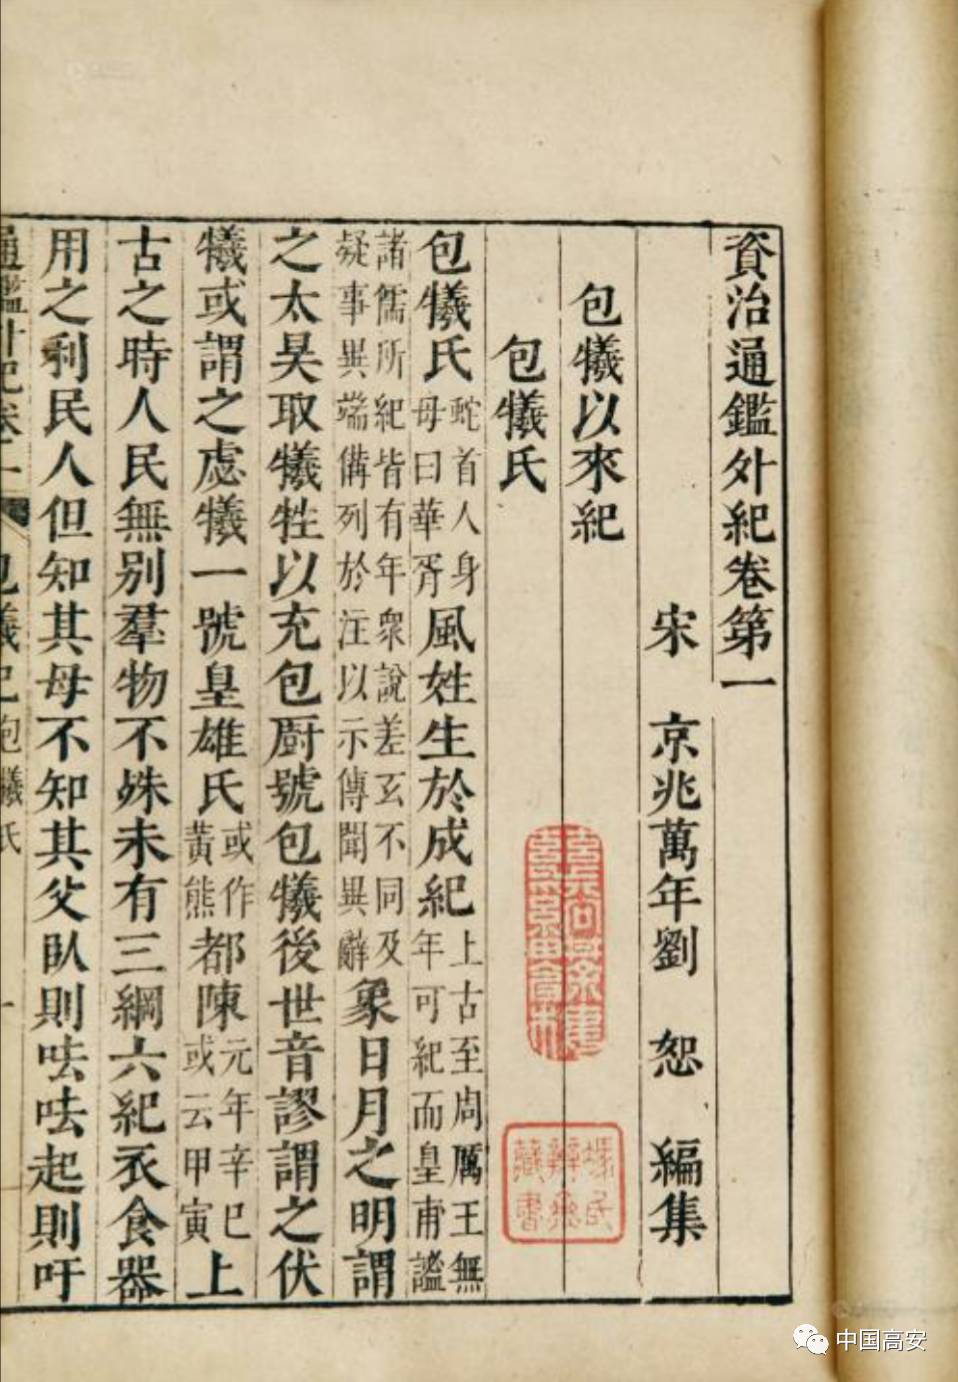 資治通鑑外紀卷第一
宋 京兆萬年劉 恕 編集
包犧以來紀
包犧氏
包犧氏蛇首人身母曰華胥風姓生於成紀上古至周厲王無年可紀而皇甫謐
諸儒所紀皆有年衆說差玄不同及疑事異端備列於注以示傳聞異辭象日月之明謂
之太昊取犧牲以充包廚號包犧後世音謬謂之伏
犧或謂之虙犧一號皇雄氏或作黃熊都陳元年辛巳或云甲寅上
古之時人民無別羣物不殊未有三綱六紀衣食器
用之利民人但知其母不知其父臥則呿呿起則吁
通鑑外紀卷一 包犧紀 包犧氏 一
藏書
中国高安